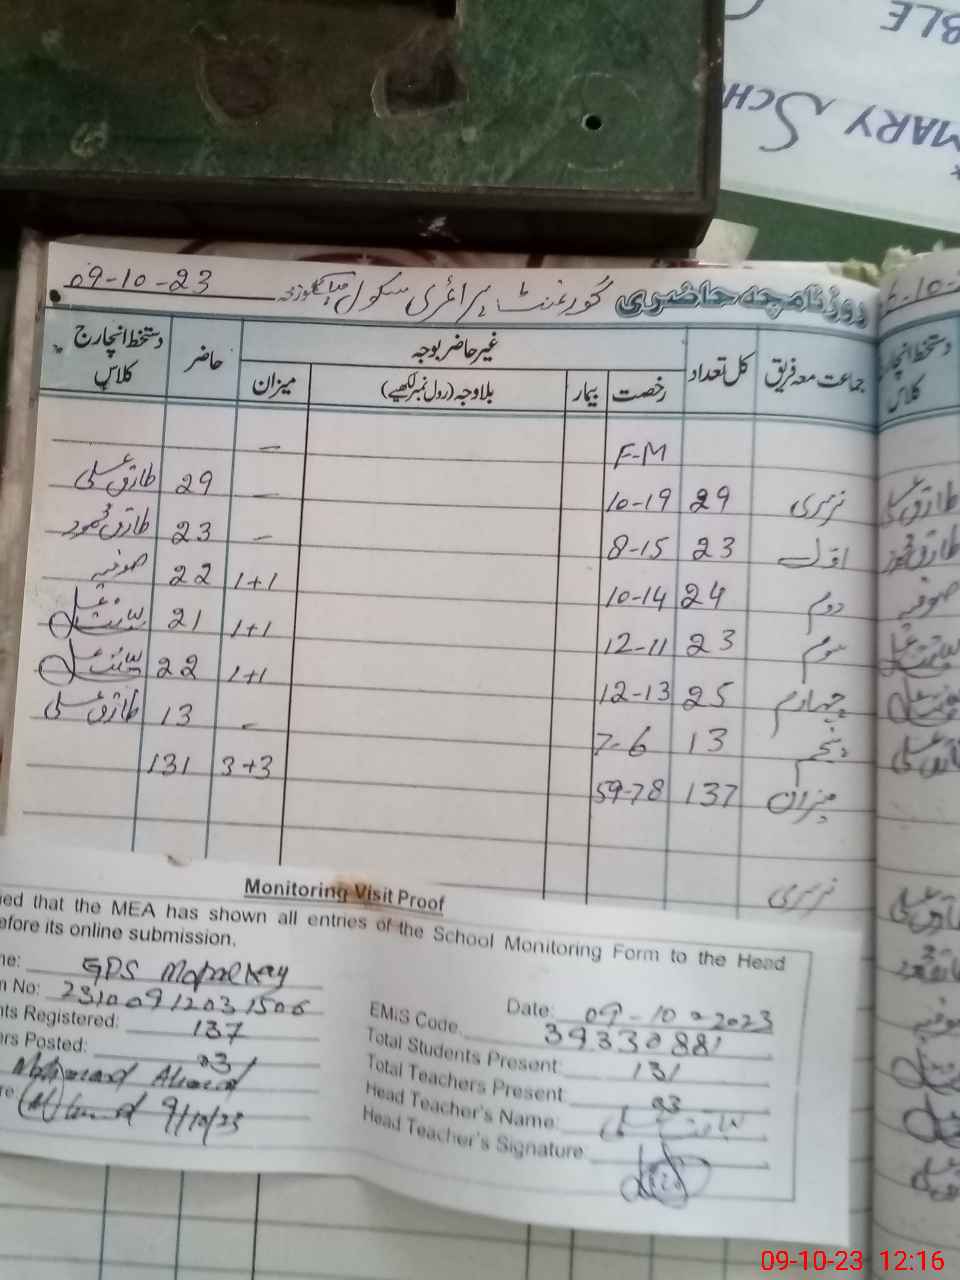 BLE
MARY SCH
روزنامچہ حاضری گورنمنٹ پرائمری سکول 09-10-23
جماعت معہ فریق کل تعداد غیر حاضر بوجہ حاضر دستخط انچارج کلاس
رخصت بیمار بلاوجہ (رول نمبر لکھیے) میزان
F-M —
نرسری 29 10-19 — 29 طارق علی
اول 23 8-15 — 23 طارق محمود
دوم 24 10-14 1+1 22 صوفیہ
سوم 23 12-11 1+1 21
چہارم 25 12-13 1+1 22
پنجم 13 7-6 - 13 طارق علی
میزان 137 59-78 3+3 131
نرسری
Monitoring Visit Proof
ied that the MEA has shown all entries of the School Monitoring Form to the Head
efore its online submission.
ne: GPS
Date: 09-10-2023
n No: 23100912031506
EMIS Code. 39330881
nts Registered: 137
Total Students Present: 131
ers Posted: 03
Total Teachers Present 03
Head Teacher's Name:
re 9/10/23
Head Teacher's Signature
09-10-23 12:16